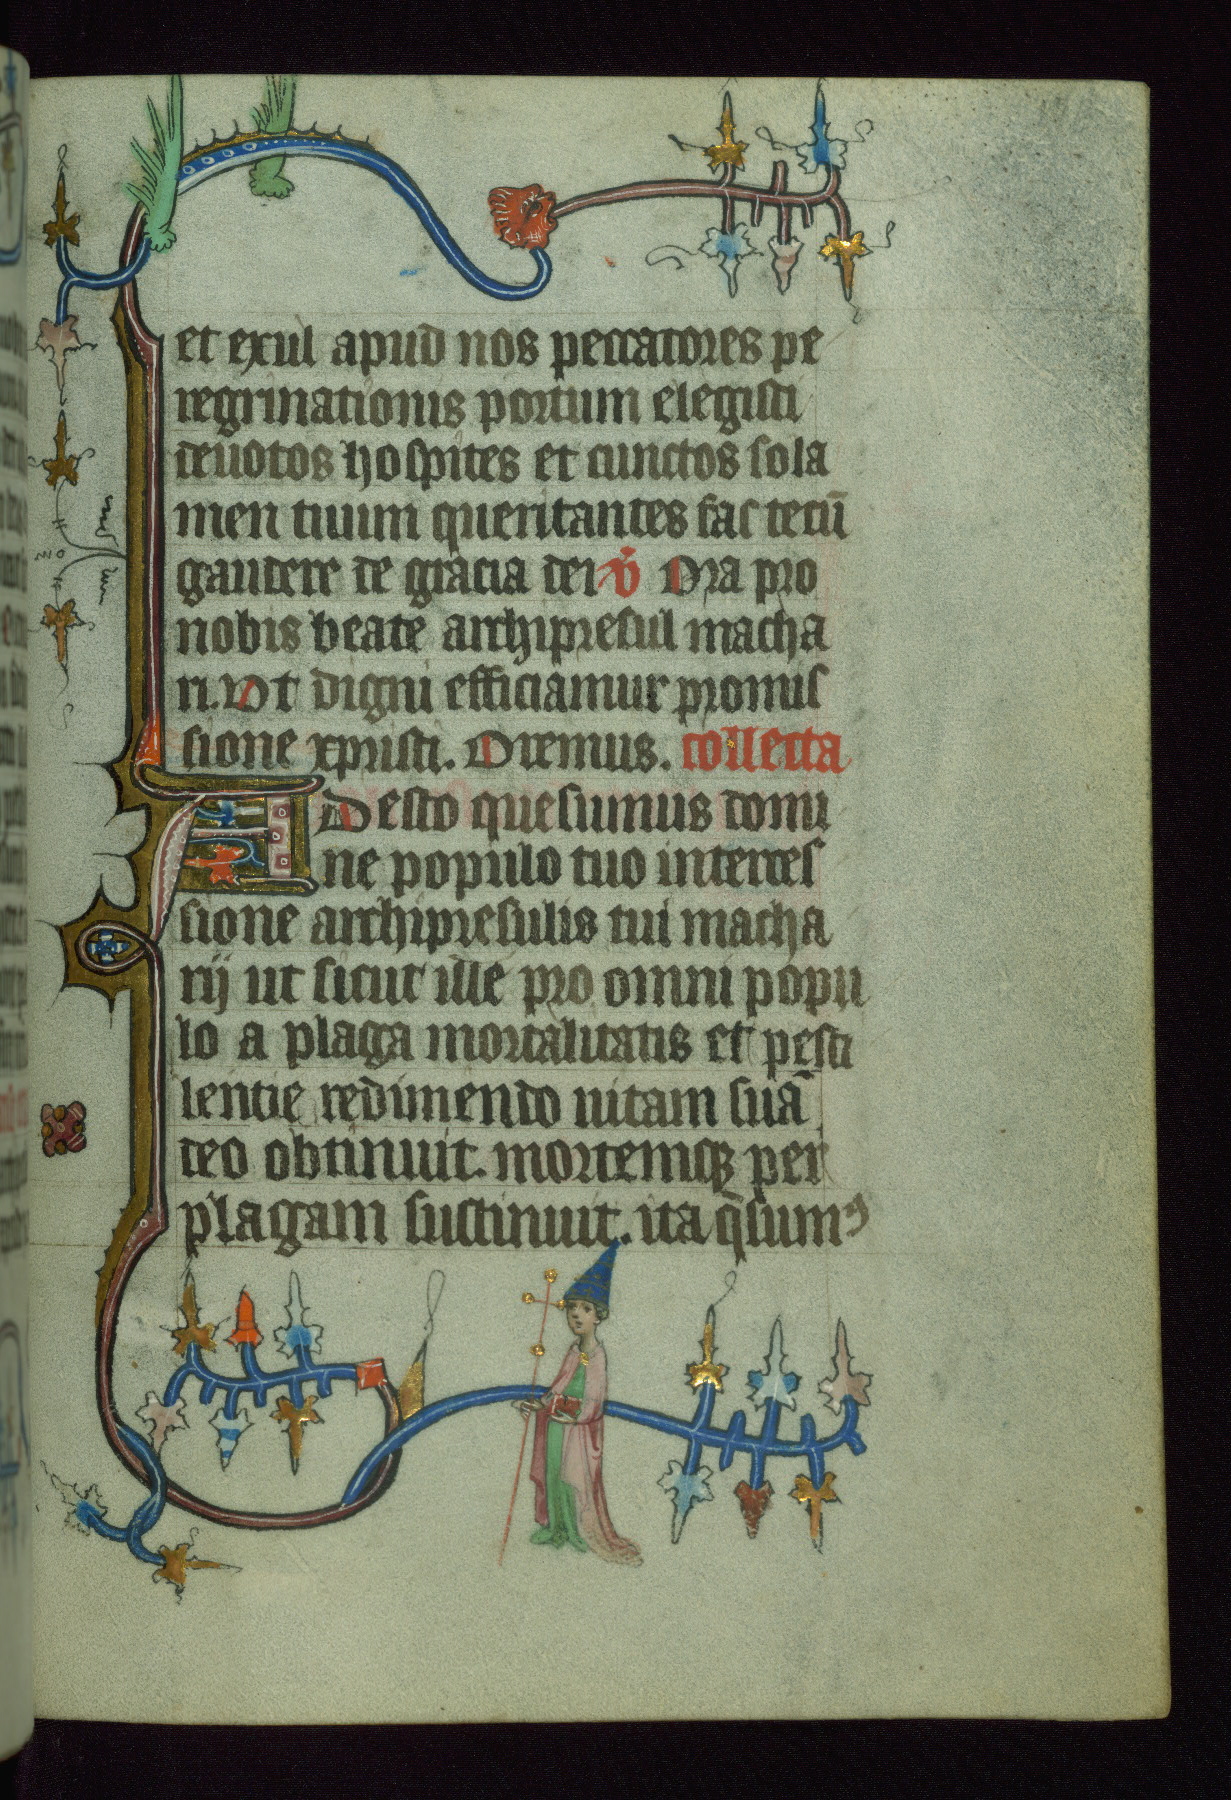 et exul apud nos peccatores pe
regrinationis portum elegisti
deuotos hospites et cunctos sola
men tuum queritantes fac tecū
gaudere de gracia dei v̄ Ora pro
nobis beate archipresul macha
ri. Vt digni efficiamur promis
sione xpristi. Oremus. collecta
Adesto quesumus domi
ne populo tuo interces
sione archipresulis tui macha
rij ut sicut ille pro omni popu
lo a plaga mortalitatis et pesti
lentie redimendo uitam suā
deo obtinuit. mortemqꝫ per
plagam sustinuit. ita q̄sumꝰ